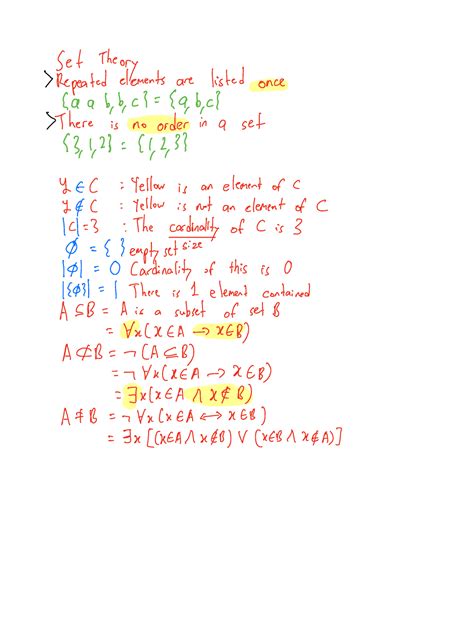 Set Theory
> Repeated elements are listed once
{a a b, b, c} = {a, b, c}
> There is no order in a set
{3, 1, 2} = {1, 2, 3}
y ∈ C : Yellow is an element of C
y ∉ C : Yellow is not an element of C
|C| = 3 : The cardinality of C is 3
size
∅ = { } empty set
|∅| = 0 Cardinality of this is 0
|{∅}| = 1 There is 1 element contained
A ⊆ B = A is a subset of set B
= ∀x(x∈A → x∈B)
A ⊄ B = ¬(A ⊆ B)
= ¬∀x(x∈A → x∈B)
= ∃x(x∈A ∧ x∉B)
A ≠ B = ¬∀x(x∈A ↔ x∈B)
= ∃x[(x∈A ∧ x∉B) ∨ (x∈B ∧ x∉A)]